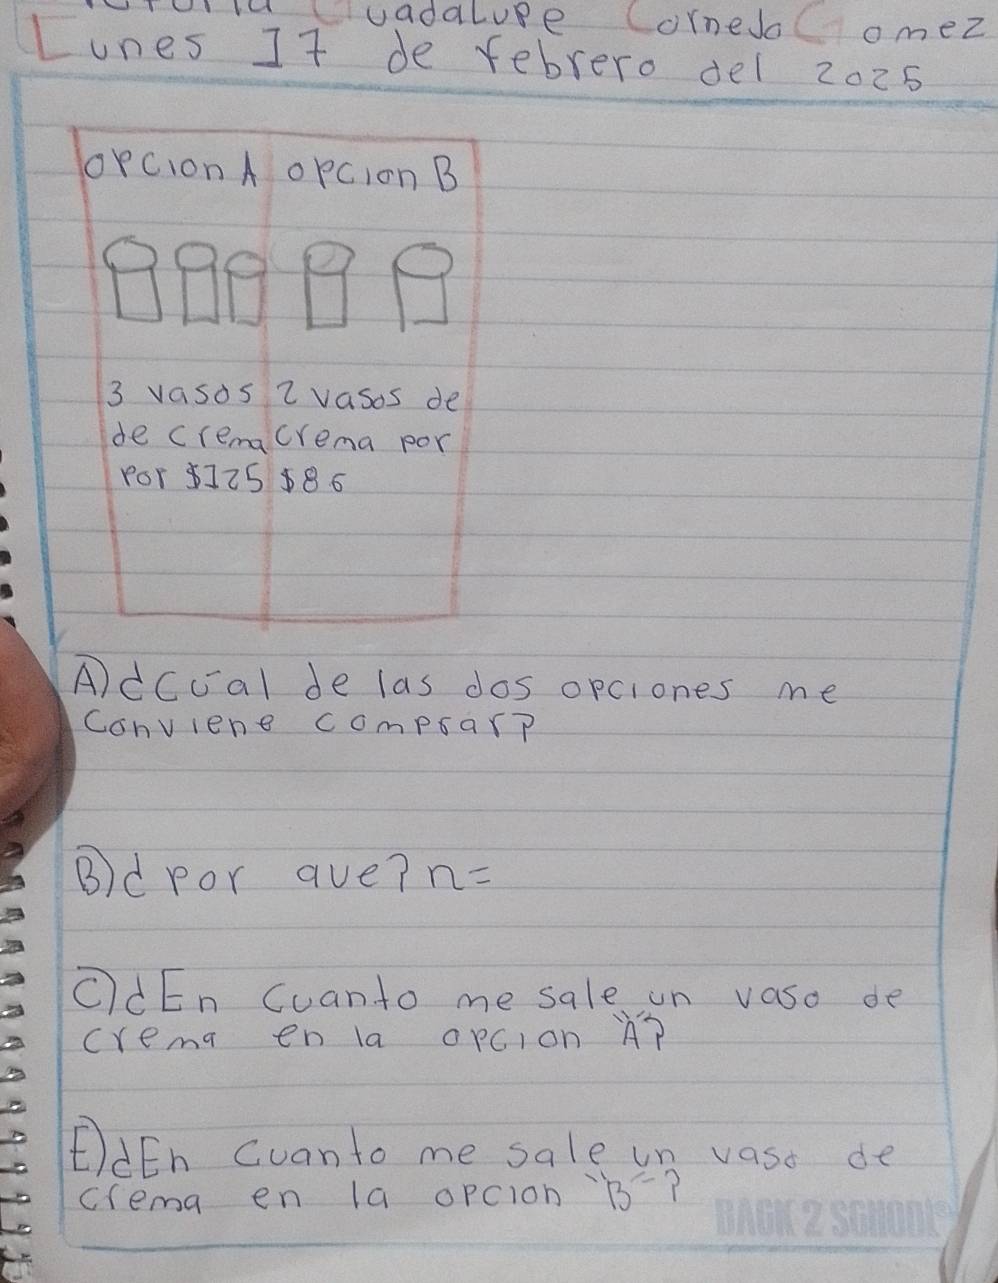 Guadalupe Cornejo Gomez
Lunes 17 de febrero del 2025
opcion A opcion B
3 vasos
de crema
por $125
2 vasos de
crema por
$86
A) ¿Cual de las dos opciones me
conviene comprar?
B) ¿por que? n=
C) ¿En cuanto me sale un vaso de
crema en la opcion "A"?
E) ¿En cuanto me sale un vaso de
crema en la opcion "B"?
BACK 2 SCHOOL